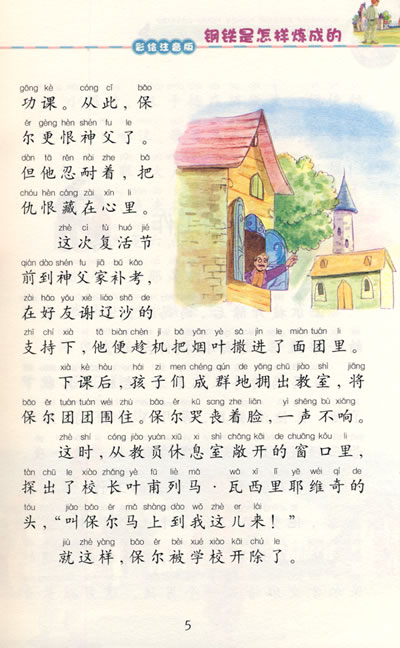 彩绘注音版
钢铁是怎样炼成的
gōng kè cóng cǐ bǎo
功课。从此,保
ěr gèng hèn shén fu le
尔更恨神父了。
dàn tā rěn nài zhe bǎ
但他忍耐着,把
chóu hèn cáng zài xīn li
仇恨藏在心里。
zhè cì fù huó jié
这次复活节
qián dào shén fu jiā bǔ kǎo
前到神父家补考,
zài hǎo yǒu xiè liáo shā de
在好友谢辽沙的
zhī chí xià tā biàn chèn jī bǎ yān yè sǎ jìn le miàn tuán li
支持下,他便趁机把烟叶撒进了面团里。
xià kè hòu hái zi men chéng qún de yōng chū jiào shì jiāng
下课后,孩子们成群地拥出教室,将
bǎo ěr tuán tuán wéi zhù bǎo ěr kū sang zhe liǎn yì shēng bù xiǎng
保尔团团围住。保尔哭丧着脸,一声不响。
zhè shí cóng jiào yuán xiū xi shì chǎng kāi de chuāng kǒu li
这时,从教员休息室敞开的窗口里,
tàn chū le xiào zhǎng yè fǔ liè mǎ wǎ xī lǐ yē wéi qí de
探出了校长叶甫列马·瓦西里耶维奇的
tóu jiào bǎo ěr mǎ shàng dào wǒ zhèr lái
头,“叫保尔马上到我这儿来!”
jiù zhè yàng bǎo ěr bèi xué xiào kāi chú le
就这样,保尔被学校开除了。
5